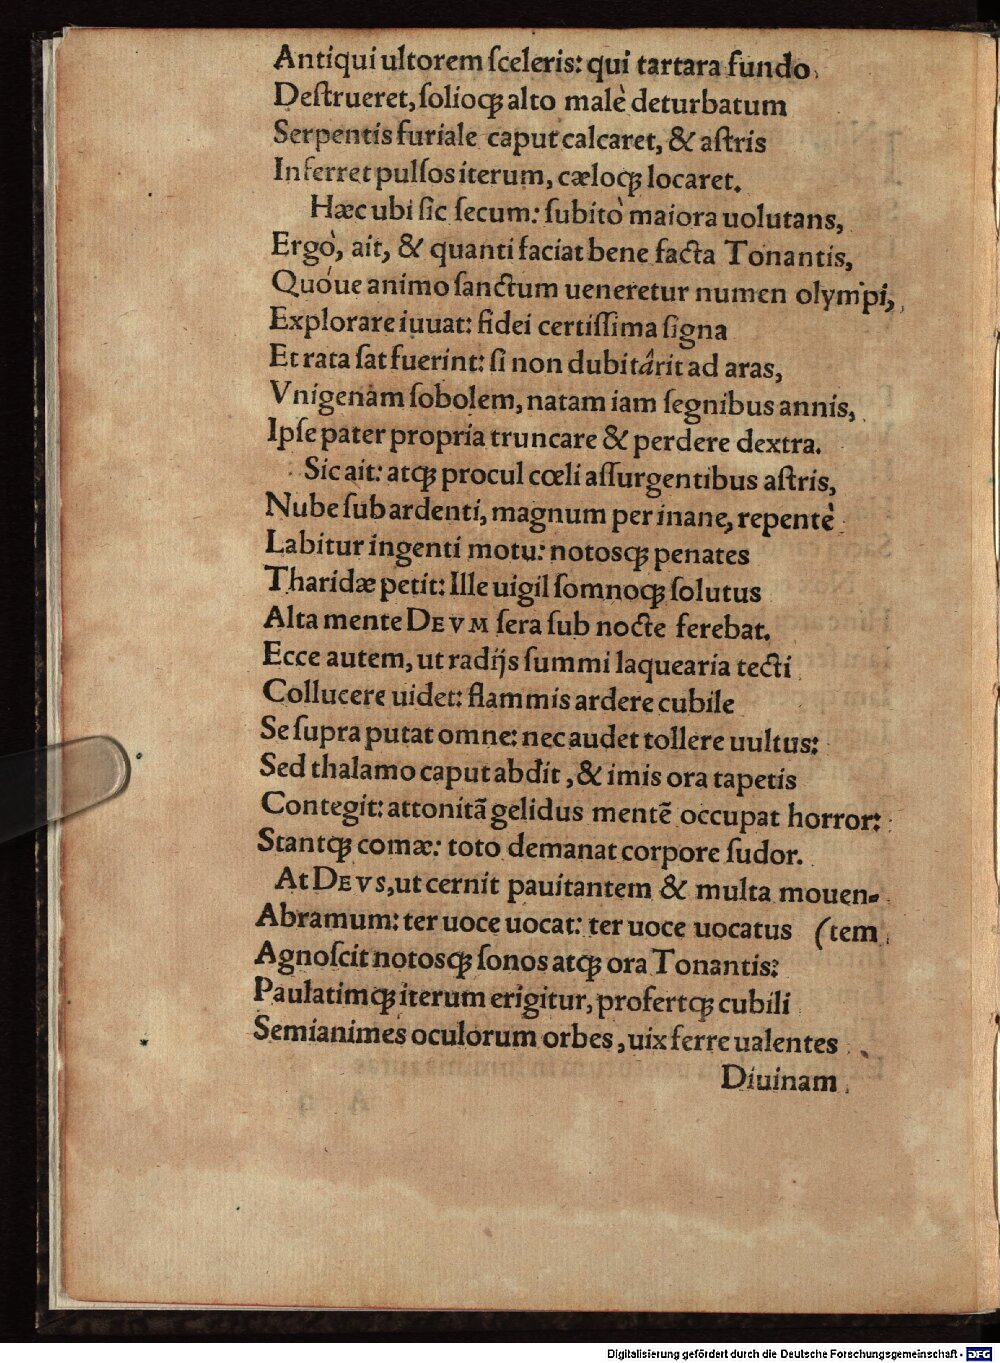 Antiqui ultorem ſceleris: qui tartara fundo
Deſtrueret, ſolioqꝫ alto malè deturbatum
Serpentis furiale caput calcaret, & aſtris
Inferret pulſos iterum, cæloqꝫ locaret.
Hæc ubi ſic ſecum: ſubitò maiora uolutans,
Ergò, ait, & quanti faciat bene facta Tonantis,
Quóue animo ſanctum ueneretur numen olympi,
Explorare iuuat: fidei certiſſima ſigna
Et rata ſat fuerint: ſi non dubitârit ad aras,
Vnigenam ſobolem, natam iam ſegnibus annis,
Ipſe pater propria truncare & perdere dextra.
Sic ait: atqꝫ procul cœli aſſurgentibus aſtris,
Nube ſub ardenti, magnum per inane, repentè
Labitur ingenti motu: notosqꝫ penates
Tharidæ petit: Ille uigil ſomnoqꝫ ſolutus
Alta mente DEVM ſera ſub nocte ferebat.
Ecce autem, ut radijs ſummi laquearia tecti
Collucere uidet: flammis ardere cubile
Se ſupra putat omne: nec audet tollere uultus:
Sed thalamo caput abdit, & imis ora tapetis
Contegit: attonitã gelidus mentẽ occupat horror:
Stantqꝫ comæ: toto demanat corpore ſudor.
At DEVS, ut cernit pauitantem & multa mouen-
Abramum: ter uoce uocat: ter uoce uocatus (tem
Agnoſcit notosqꝫ ſonos atqꝫ ora Tonantis:
Paulatimqꝫ iterum erigitur, profertqꝫ cubili
Semianimes oculorum orbes, uix ferre ualentes
Diuinam
Digitalisierung gefördert durch die Deutsche Forschungsgemeinschaft - DFG